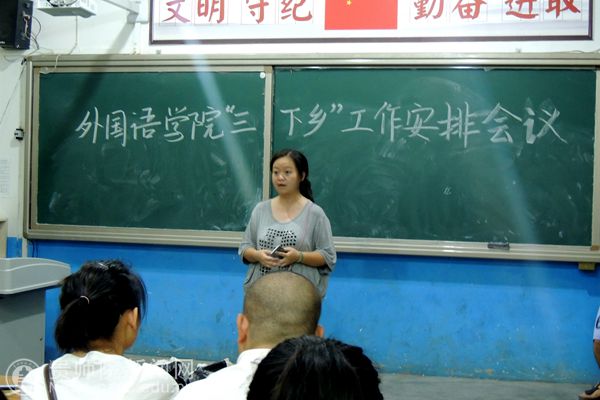 文明 守纪 勤奋 进取
外国语学院“三下乡”工作安排会议